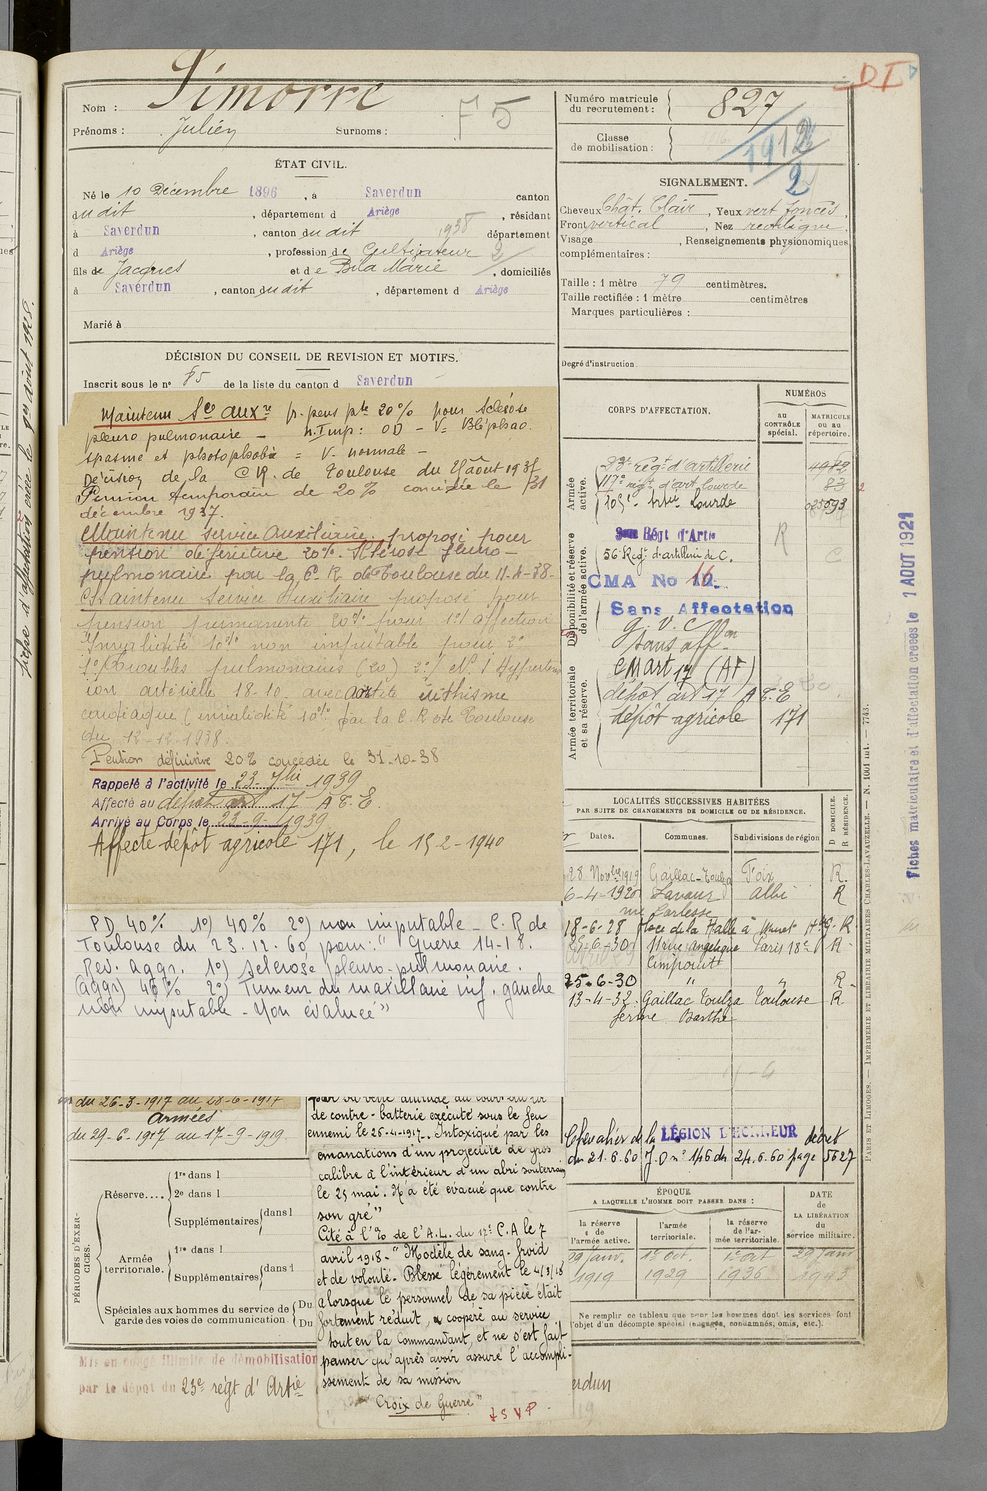 Nom : Simorre
Prénoms : Julien Surnoms :
F 5
Numéro matricule du recrutement : 827
Classe de mobilisation :
1912
2
DI
ÉTAT CIVIL.
Né le 10 Décembre 1896, à Saverdun canton
dudit, département d Ariège, résidant
à Saverdun, canton dudit 1938 département
d Ariège, profession de Cultivateur 2
fils de Jacques et de Bila Marie, domiciliés
à Saverdun, canton dudit, département d Ariège
Marié à
DÉCISION DU CONSEIL DE REVISION ET MOTIFS.
Inscrit sous le no 85 de la liste du canton d Saverdun
SIGNALEMENT.
Cheveux Chât. Clair, Yeux vert foncés,
Front vertical, Nez rectiligne,
Visage , Renseignements physionomiques
complémentaires :
Taille : 1 mètre 79 centimètres.
Taille rectifiée : 1 mètre centimètres
Marques particulières :
Degré d'instruction
Maintenu Sce auxre p. pens pte 20% pour Sclérose
pleuro pulmonaire - n. Imp: OD - V= Blépharo
spasme et photophobie = V. normale -
Décision de la CR. de Toulouse du août 193
Pension temporaire de 20% concédée le 31
décembre 1937.
Maintenu service Auxiliaire, proposé pour
pension définitive 20% Sclérose pleuro-
pulmonaire par la C. R de Toulouse du 11-4-38-
Maintenu Service Auxiliaire proposé pour
pension permanente 20% pour 1re affection
Invalidité 10% non imputable pour 2e
1o/ Troubles pulmonaires (20) 2o/ Hyperten
ion artérielle 18-10. avec
cardiaque (invalidité 10% par la C. R de Toulouse
du 12-12-1938.
Pention définive 20% concédée le 31-10-38
Rappelé à l'activité le 23-7bre 1939
Affecté au dépôt art 17 A.T.E.
Arrivé au Corps le 23-9-1939
Affecté dépôt agricole 171, le 15-2-1940
PD 40% 1o) 40% 2o) non imputable - C.R de
Toulouse du 23.12.60 pour: " Guerre 14-18.
Rev. aggr. 1o) Sclérose pleuro-pulmonaire.
(aggr) 40% 2o) Tumeur du maxillaire inf. gauche
non imputable - Non évaluée"
CORPS D'AFFECTATION.
NUMÉROS
au contrôle spécial.
matricule ou au répertoire.
Armée active.
23e régt d'artillerie
117e régt d'art. lourde
105e Lourde
Disponibilité et réserve de l'armée active.
Régt d'Artie
56 Régt d'artillerie de C.
CMA No 16
Sans Affectation
G.V.C affon
Sans aff.
Armée territoriale et sa réserve.
CM art 17 (AF)
dépôt art 17 A.T.E
dépôt agricole 171
R
C
LOCALITÉS SUCCESSIVES HABITÉES
PAR SUITE DE CHANGEMENTS DE DOMICILE OU DE RÉSIDENCE.
Dates. Communes. Subdivisions de région
D DOMICILE. R RÉSIDENCE.
28 Novbre 1919 Gaillac-Toulza Foix R.
6-4-1920 Lavaur Albi R
18-6-28 Place de la Halle à Muret Hte G. R.
Paris 18e R.
25-6-30 " " R-
13-4-32 Gaillac Toulza Toulouse R.
ferme Barthe
Chevalier de la LÉGION D'HONNEUR décret
du 21.6.60 J.O no 146 du 24.6.60 page 5627
du 26-3-1917 au 28-6-1917
Armées
du 29-6-1917 au 17-9-1919.
de contre-batterie exécuté sous le feu
ennemi le 26-4-1917. Intoxiqué par les
émanations d'un projectile de gros
calibre à l'intérieur d'un abri souterrain
le 25 mai. N'a été évacué que contre
son gré"
Cité à l'O de l'A.L. du 12e C.A le 7
avril 1918-" Modèle de sang-froid
et de volonté. Blessé légèrement le 4/3/18
alors que le personnel de sa pièce était
fortement réduit, a coopéré au service
tout en la commandant, et ne s'est fait
panser qu'après avoir assuré l'accompli-
ssement de sa mission
"Croix de Guerre"
T S V P.
PÉRIODES D'EXERCICES.
Réserve....
1re dans l
2e dans l
Supplémentaires dans l
Armée territoriale.
1re dans l
Supplémentaires dans l
Spéciales aux hommes du service de garde des voies de communication
Du
Du
ÉPOQUE
A LAQUELLE L'HOMME DOIT PASSER DANS :
la réserve de l'armée active.
l'armée territoriale.
la réserve de l'armée territoriale.
DATE DE LA LIBÉRATION du service militaire.
29 Janv. 1919
1er Oct. 1929
1er Oct. 1936
29 Janv 1943
Ne remplir ce tableau que pour les hommes dont les services font
l'objet d'un décompte spécial (engagés, condamnés, omis, etc.).
Mis en congé illimité de démobilisation
par le dépôt du 23e régt d'Artie
erdun
Fiches matriculaire et d'affectation créées le 1 AOUT 1921
PARIS ET LIMOGES. — IMPRIMERIE ET LIBRAIRIE MILITAIRES CHARLES-LAVAUZELLE.